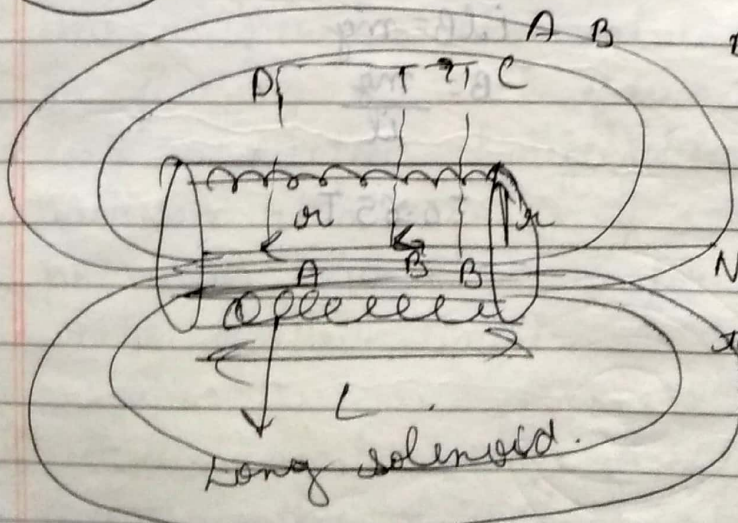 A B
D T T C
r r
A B B
N
L
Long solenoid.